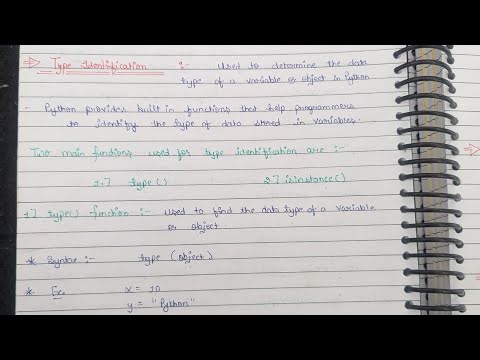 ⇒ Type Identification :- Used to determine the data
type of a variable or object in Python
- Python provides built in functions that help programmers
to identify the type of data stored in variables.
Two main functions used for type identification are :-
1.] type() 2.] isinstance()
1.] type() function :- Used to find the data type of a variable
or object.
* Syntax :- type (object)
* Ex. x = 10
y = "Python"